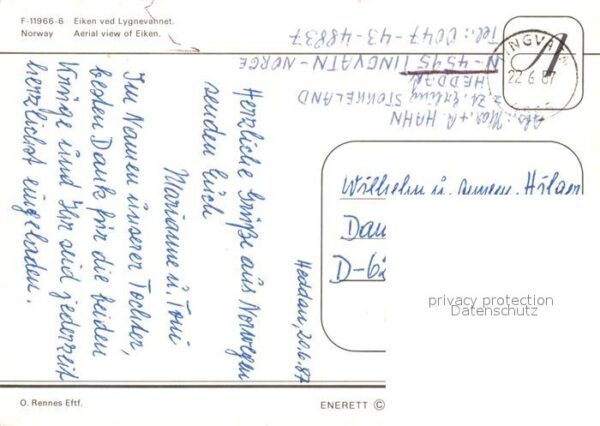 F-11966-6 Eiken ved Lygnevahnet.
Norway Aerial view of Eiken.
Abs.: Mar. + A. HAHN
z. Zt. Erling STOKKELAND
HEDDAN
N-4595 TINGVATN-NORGE
Tel.: 0047-43-48837
INGVA
22.6.87
Heddan, 20.6.87
Herzliche Grüße aus Norwegen
senden Euch
Marianne u. Toni
Im Namen unserer Tochter,
besten Dank für die beiden
Krüge und Ihr seid jederzeit
herzlichst eingeladen.
Wilhelm u.
Dau
D-62
privacy protection
Datenschutz
O. Rennes Eftf.
ENERETT ©